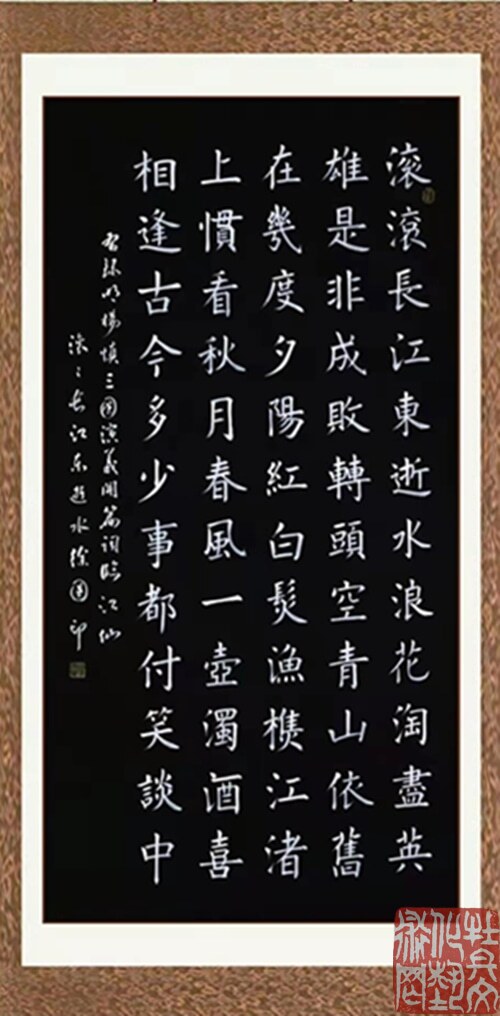 滚滚長江東逝水浪花淘盡英
雄是非成敗轉頭空青山依舊
在幾度夕陽紅白髮漁樵江渚
上慣看秋月春風一壺濁酒喜
相逢古今多少事都付笑談中
録明楊慎三國演義開篇詞臨江仙
滚々長江东逝水徐國印